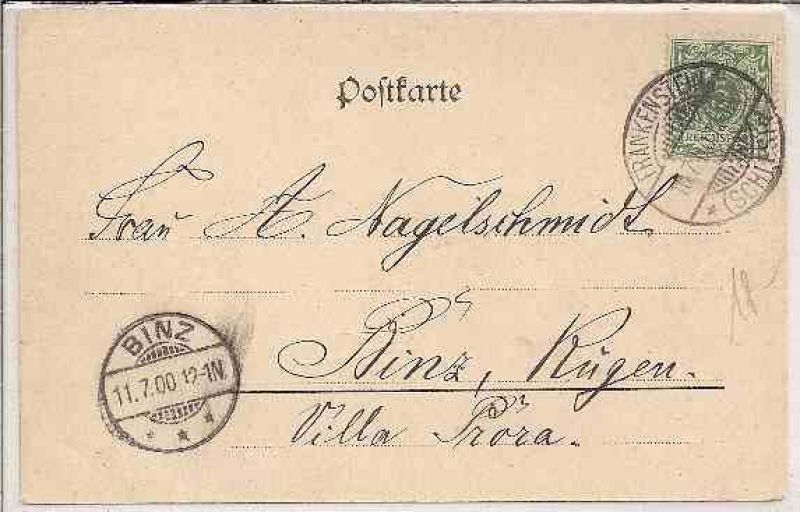 Postkarte
REICHSPOST
FRANKENSTEIN
(SCHLESIEN)
Frau A. Nagelschmidt
Binz, Rügen.
Villa Prora.
BINZ
11.7.00 12-1N.
18-